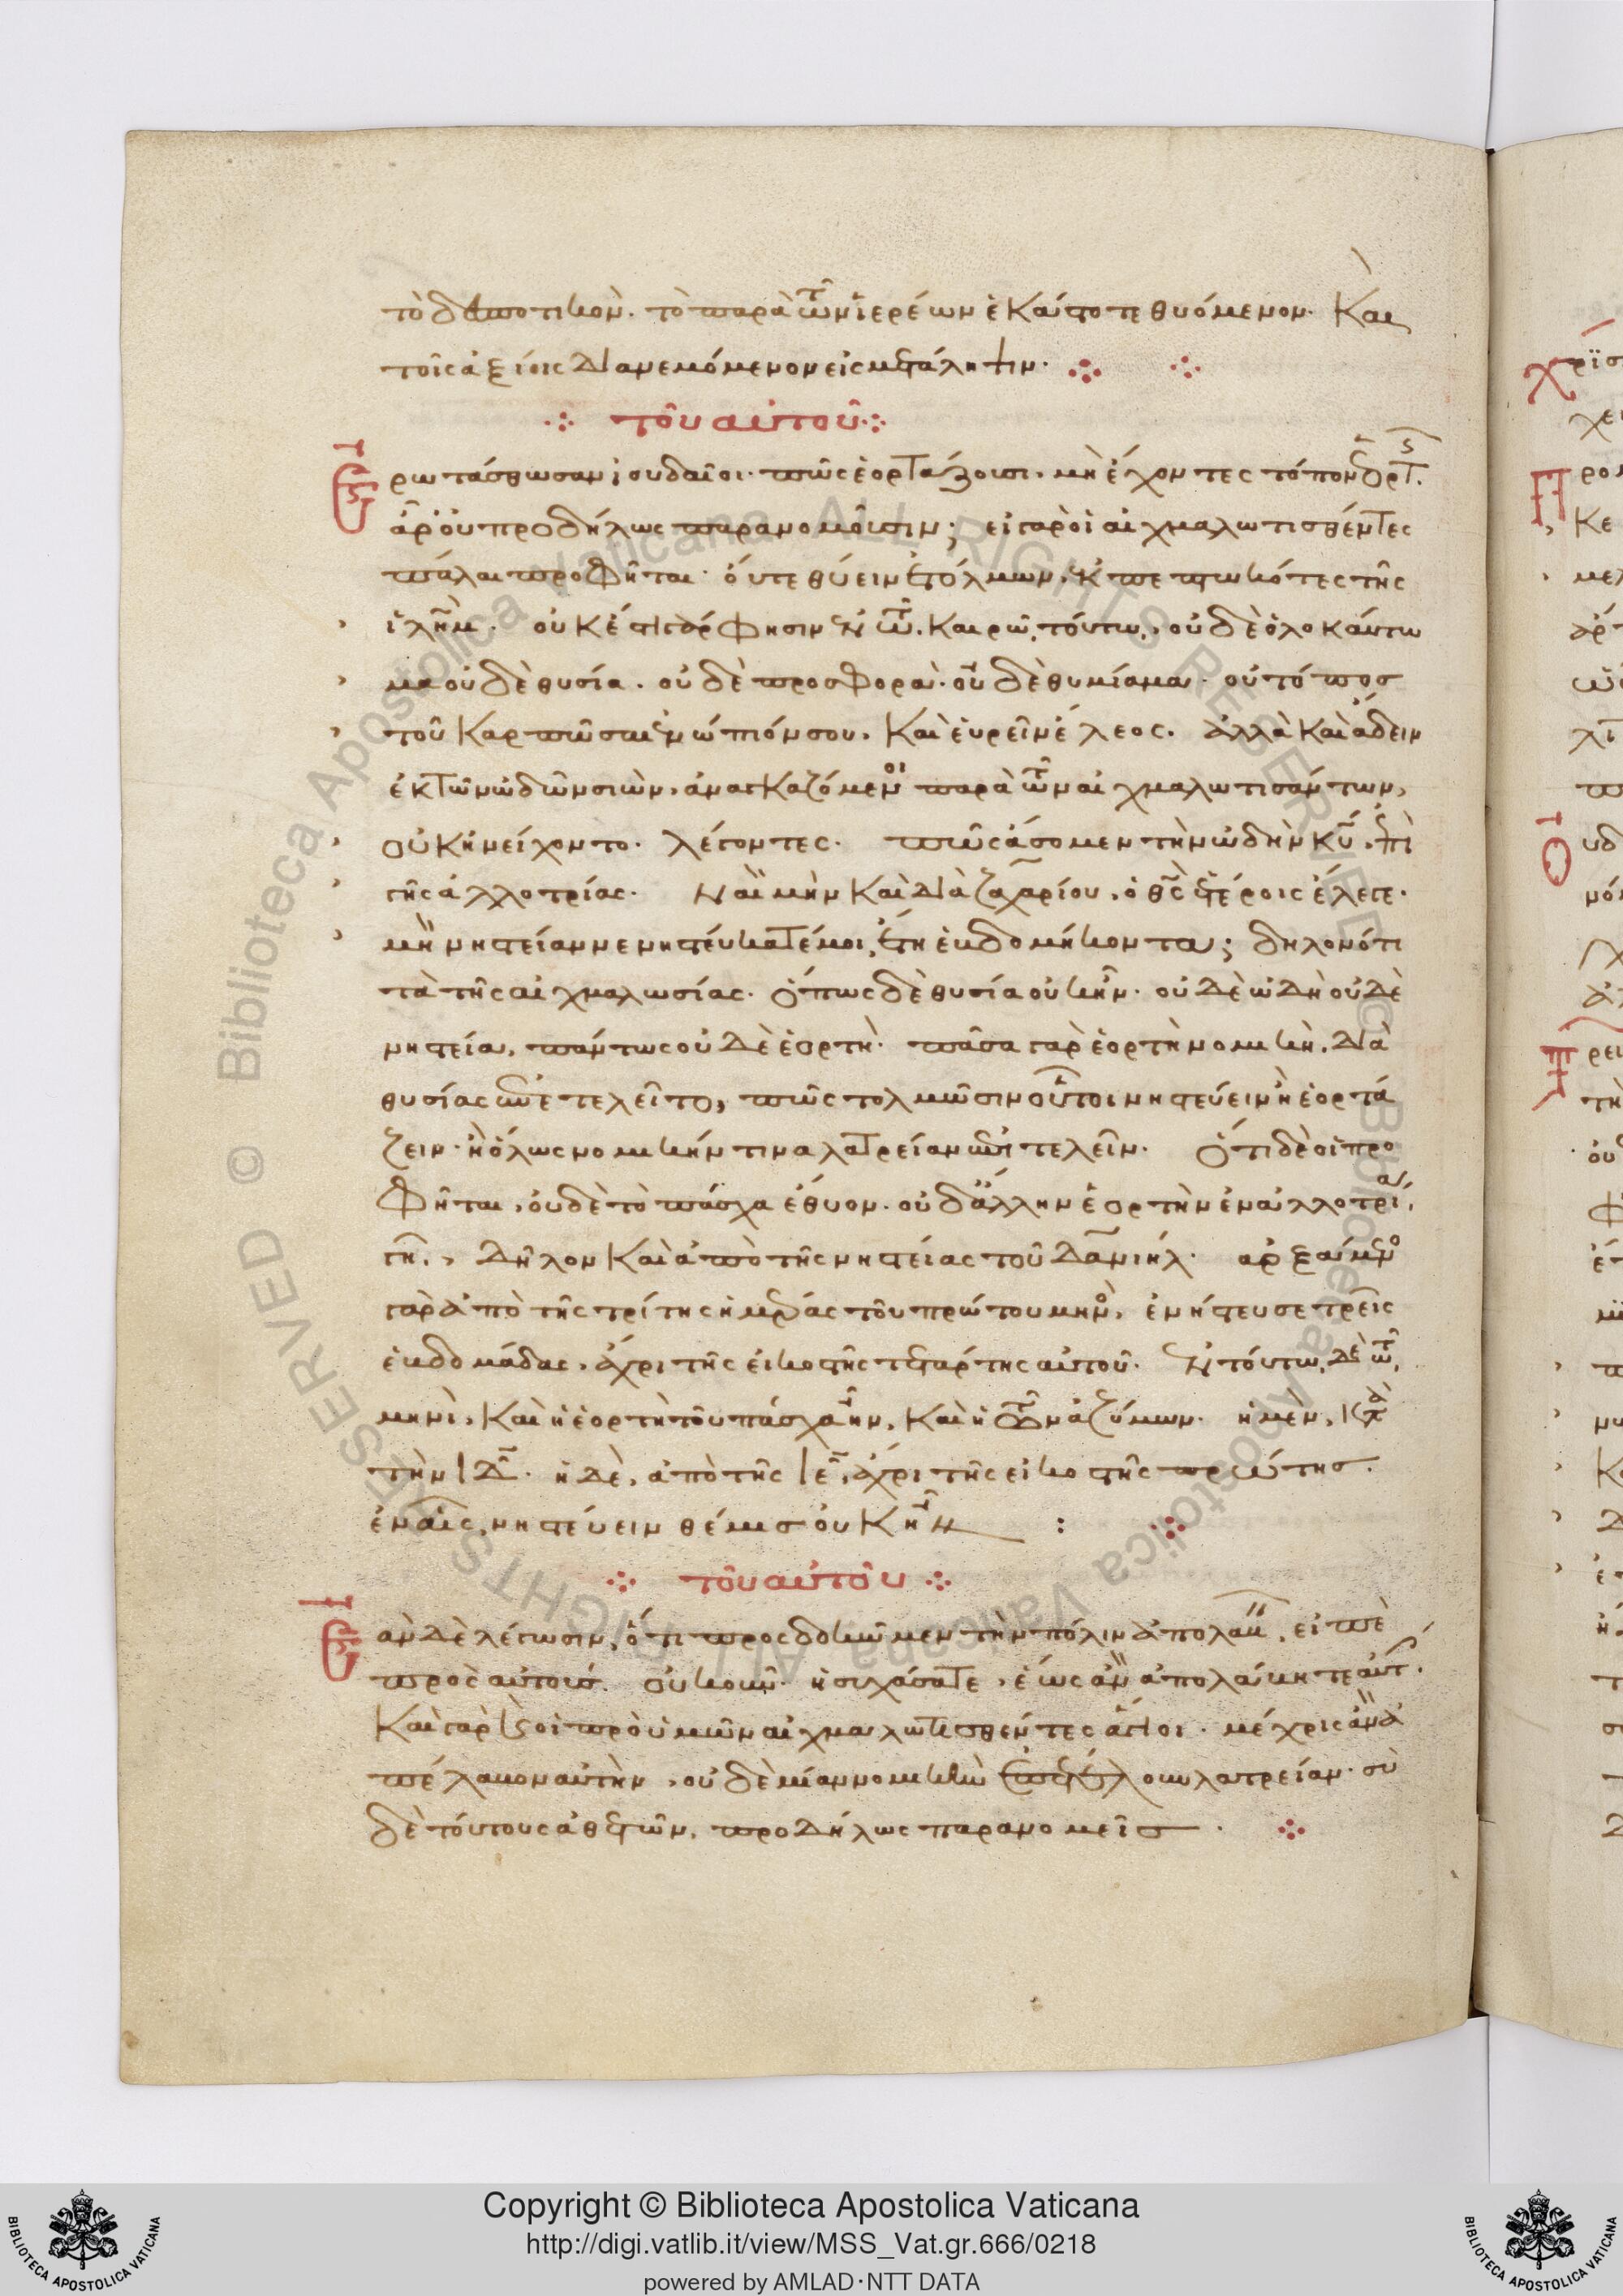 τὸ δεσποτικὸν. τὸ παρὰ τῶν ἱερέων ἑκάστοτε θυόμενον. Και
τοῖς ἀξίοις διανεμόμενον εἰς μετάληψιν.
τοῦ αὐτοῦ
Ἐρωτάσθωσαν ἰουδαῖοι. πῶς ἑορτάζουσι. μὴ ἔχοντες τόπον ἑορτ.
ἆρ' οὐ προδήλως παρανομοῦσιν; εἰ γὰρ οἱ αἰχμαλωτισθέντες
πάλαι προφῆται. ὄυτε θύειν ἐτόλμων. ἐκπεπτωκότες τῆς
ἱλῆμ. οὐκ ἔστι γάρ φησιν ἐν τῶ καιρῶ τούτω, οὐδὲ ὁλοκαύτω
μα οὐδὲ θυσία. οὐδὲ προσφορὰ. οὐδὲ θυμίαμα. οὐ τόπος
τοῦ καρπῶσαι ἐνώπιόν σου. Καὶ εὑρεῖν ἔλεος. ἀλλὰ καὶ ἄδειν
ἐκ τῶν ὠδῶν σιὼν, ἀναγκαζόμενοι παρὰ τῶν αἰχμαλωτισάντων,
οὐκ ἠνείχοντο. λέγοντες. πῶς ἄσομεν τὴν ὠδὴν κῡ ἐπὶ
γῆς ἀλλοτρίας. Ναὶ μὴν καὶ διὰ ζαχαρίου, ὁ θς ἑτέροις ἔλεγε.
μὴ νηστείαν νενηστεύκατέ μοι, ἔτη ἑβδομήκοντα; δηλονότι
τὰ τῆς αἰχμαλωσίας. Ὅπως δὲ θυσία οὐκ ἦν. οὐδὲ ὠδὴ οὐδὲ
νηστεία, πάντως οὐδὲ ἑορτὴ. πᾶσα γὰρ ἑορτὴ νομικὴ, διὰ
θυσίας ἐπετελεῖτο, πῶς τολμῶσιν οὗτοι νηστεύειν ἢ ἑορτά
ζειν. ἢ ὅλως νομικήν τινα λατρείαν ἐπιτελεῖν. Ὅτι δὲ οἱ προ
φῆται, οὐδὲ τὸ πάσχα ἔθυον. οὐδ' ἄλλην ἑορτὴν ἐν ἀλλοτρία
γῆ., Δῆλον καὶ ἀπὸ τῆς νηστείας τοῦ δανιήλ. ἀρξάμενος
γὰρ ἀπὸ τῆς τρίτης ἡμέρας τοῦ πρώτου μηνὸς, ἐνήστευσε τρεῖς
ἑβδομάδας. ἄχρι τῆς εἰκοστῆς τετάρτης αὐτοῦ. Ἐν τούτω δὲ τῶ
μηνὶ, καὶ ἡ ἑορτὴ τοῦ πάσχα ἦν. Καὶ ἡ τῶν ἀζύμων. ἡ μὲν, κατὰ
τὴν ιδ. ἡ δὲ, ἀπὸ τῆς ιε, ἄχρι τῆς εἰκοστῆς πρώτης.
ἐν αἷς νηστεύειν θέμις οὐκ ἦν :
τοῦ αὐτοῦ
Ἐὰν δὲ λέγωσιν, ὅτι προσδοκῶμεν τὴν πόλιν ἀπολαβεῖν, εἰπὲ
πρὸς αὐτούς. οὐκοῦν ἡσυχάσατε, ἕως ἂν ἀπολάβητε αὐτ.
Καὶ γὰρ καὶ οἱ πρὸ ὑμῶν αἰχμαλωτισθέντες ἅγιοι. μέχρις ἂν ἀ
πέλαβον αὐτὴν, οὐδεμίαν νομικὴν ἐπετέλουν λατρείαν. σὺ
δὲ τούτους ἀθετῶν, προδήλως παρανομεῖς.
Copyright © Biblioteca Apostolica Vaticana
http://digi.vatlib.it/view/MSS_Vat.gr.666/0218
powered by AMLAD·NTT DATA